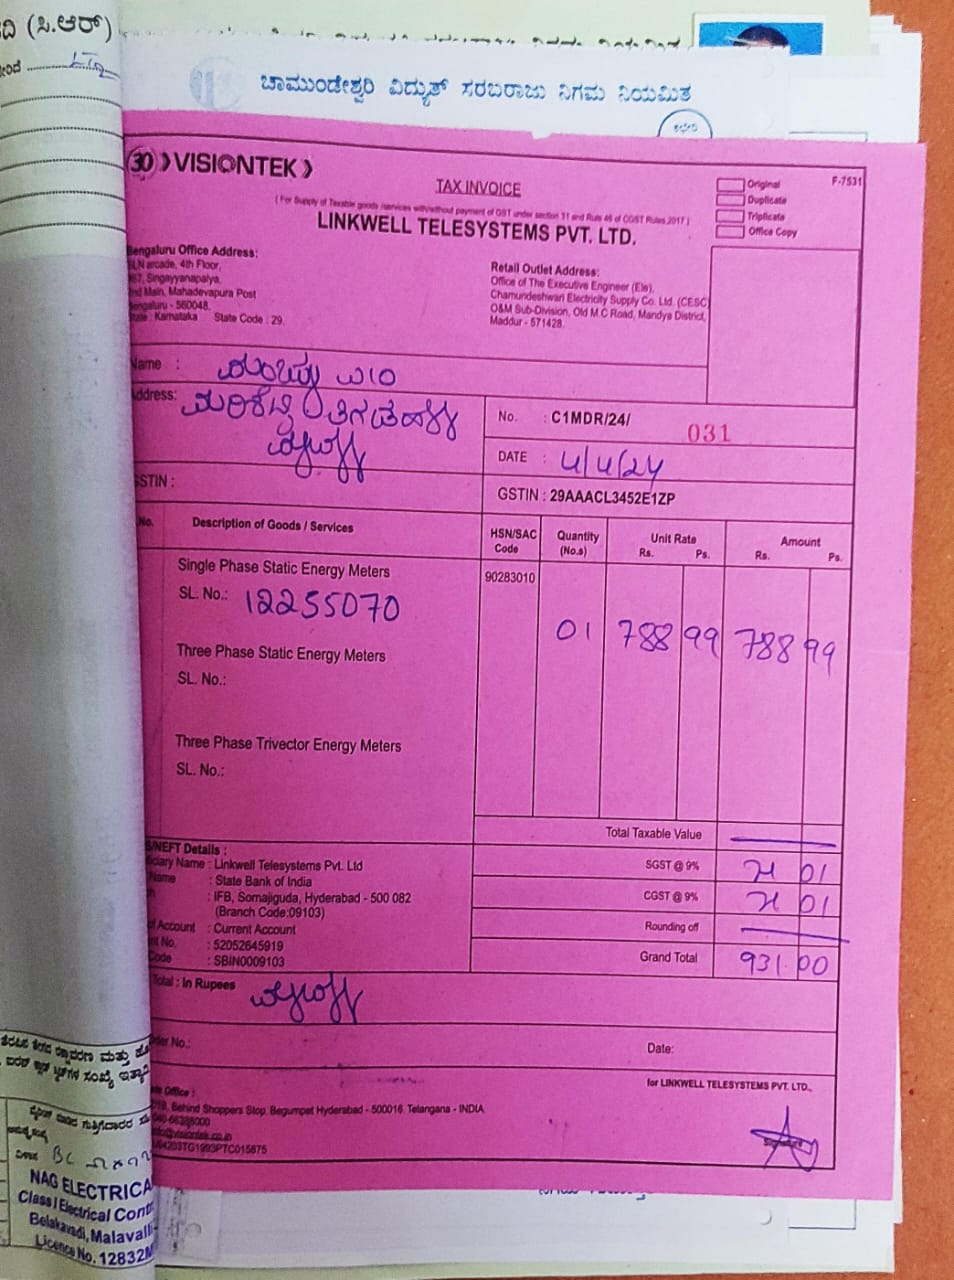 ದಿ (ಸಿ.ಆರ್)
ಚಾಮುಂಡೇಶ್ವರಿ ವಿದ್ಯುತ್ ಸರಬರಾಜು ನಿಗಮ ನಿಯಮಿತ
30 VISIONTEK
TAX INVOICE
( For Supply of Taxable goods /services with/without payment of GST under section 31 and Rule 46 of CGST Rules,2017 )
LINKWELL TELESYSTEMS PVT. LTD.
F-7531
Original
Duplicate
Triplicate
Office Copy
Bengaluru Office Address:
arcade, 4th Floor,
Singayyanapalya,
Main, Mahadevapura Post
Bengaluru - 560048.
State : Karnataka State Code : 29.
Retail Outlet Address:
Office of The Executive Engineer (Ele),
Chamundeshwari Electricity Supply Co. Ltd. (CESC)
O&M Sub-Division, Old M.C Road, Mandya District,
Maddur - 571428.
Name :
Address:
No. : C1MDR/24/ 031
DATE : 4/4/24
GSTIN :
GSTIN : 29AAACL3452E1ZP
No. Description of Goods / Services HSN/SAC Code Quantity (No.s) Unit Rate Rs. Ps. Amount Rs. Ps.
Single Phase Static Energy Meters 90283010
SL. No.: 12255070
01 788 99 788 99
Three Phase Static Energy Meters
SL. No.:
Three Phase Trivector Energy Meters
SL. No.:
Total Taxable Value
SGST @ 9% 71 01
CGST @ 9% 71 01
Rounding off
Grand Total 931.00
/NEFT Details :
ciary Name : Linkwell Telesystems Pvt. Ltd
Name : State Bank of India
: IFB, Somajiguda, Hyderabad - 500 082
(Branch Code:09103)
of Account : Current Account
nt No. : 52052645919
Code : SBIN0009103
Total : In Rupees
der No.:
Date:
for LINKWELL TELESYSTEMS PVT. LTD.,
te Office :
Behind Shoppers Stop, Begumpet Hyderabad - 500016. Telangana - INDIA
040-66388000
info@visiontek.co.in
U64203TG1993PTC015875
Signature
NAG ELECTRICA
Class I Electrical Cont
Belakavadi, Malavalli
Licence No. 12832M